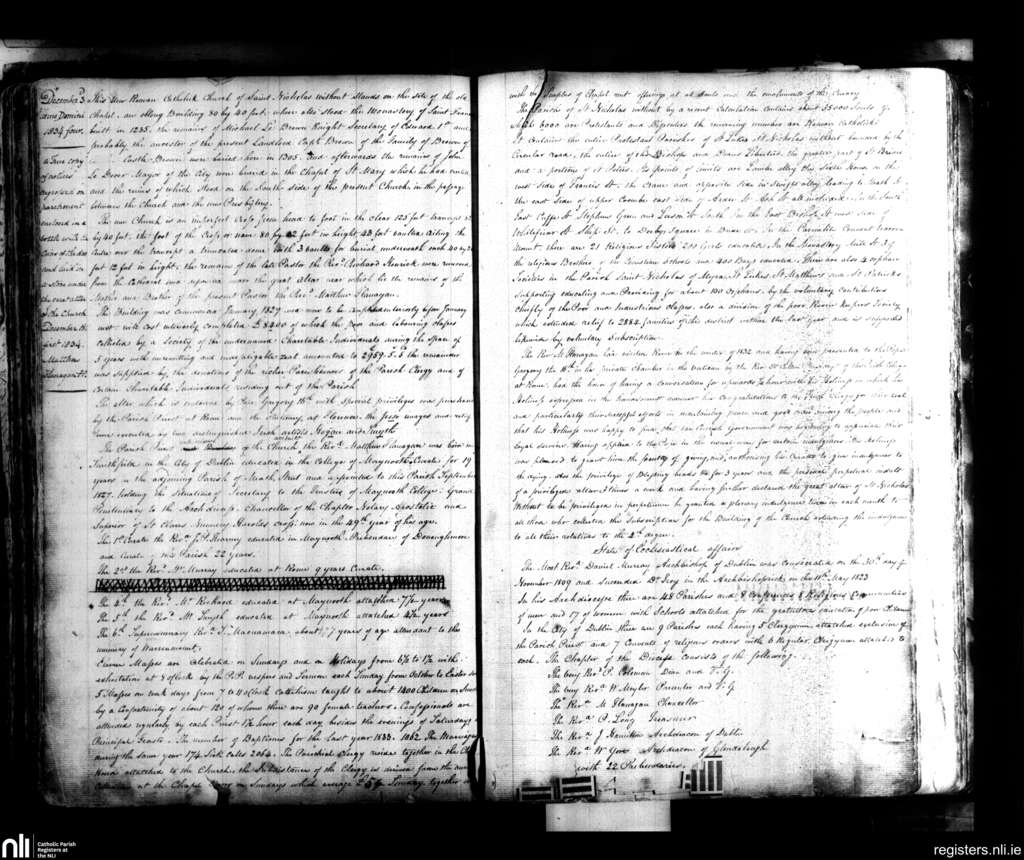 December 3
Anno Domini
1834 four
A True copy
of notices
engrossed on
parchment
enclosed in a
bottle with
Coins of
and sunk in
a stone under
the great altar
of the Church
December 4th
1834.
Matthew
Flanagan P.P.
This New Roman Catholick Church of Saint Nicholas Without stands on the site of the old
Chapel, an oblong Building 80 by 40 feet, where also stood the Monastery of Saint Francis
built in 1235. the remains of Michael Le Brown Knight Secretary of Edward 1st and
probably the ancestor of the present Landlord Capt. Brown of the Family of Brown of
Castle Brown were buried here in 1305. and afterwards the remains of John
Le Decer Mayor of the City were buried in the Chapel of St. Mary which he had erected
and the ruins of which stood on the South side of the present Church in the passage
between the Church and the new Presbytery.
The new Church is an imperfect Cross from head to foot in the clear 125 feet transept
by 40 feet. the foot of the Cross or nave 80 by 42 feet in height, 43 feet vaulted ceiling, the
over the transept a truncated dome with 3 vaults for burial underneath each 40 by
feet 12 feet in height. the remains of the late Pastor the Revd. Richard Kenrick were removed
from the Cathedral and repose near the great Altar near which lie the remains of the
Sister and Brother of the present Pastor the Revd. Matthew Flanagan.
The Building was commenced January 1829 and
will cost entirely completed £8400 of which the poor and labouring classes
collected by a Society of the undernamed Charitable Individuals during the space of
5 years with unremitting and indefatigable zeal amounted to 2959.5.6 the remainder
was supplied by the donations of the richer Parishioners of the Parish Clergy and of
certain Charitable Individuals residing out of this Parish.
The altar which is endowed by Pope Gregory 16th with special privileges was purchased
by the Parish Priest at Rome and the at Florence. the images and
were executed by two distinguished Irish artists Hogan and Smyth
The Parish Priest of the Church the Revd. Matthew Flanagan was born in
Smithfield in the City of Dublin educated in the College of Maynooth Curate for 19
years in the adjoining Parish of Meath Street and appointed to this Parish September
1827. holding the situations of Secretary to the Trustees of Maynooth College. Grand
Penitentiary to the Archdiocese. Chancellor of the Chapter Notary Apostolic and
Superior of St Clares Nunnery Harolds Cross. now in the 49th year of his age.
The 1st Curate the Revd. J.P. Kearny educated in Maynooth. Prebendary of Donoughmore
and Curate of this Parish 22 years.
The 2nd the Revd. Mr Murray educated at Rome 9 years Curate.
The 4th the Revd. Mr Rickard educated at Maynooth attached 7½ years
The 5th the Revd. Mr Smyth educated at Maynooth attached 4½ years
The 6th Supernumerary Revd. J. Macnamara about 77 years of age attendant to the
nunnery of Warrenmount.
Eleven Masses are celebrated on Sundays and on Holidays from 6½ to 1½ with
exhortation at 8 oClock by the P.P. vespers and sermon each Sunday from October to Easter
5 Masses on week days from 7 to 11 oClock Catechism taught to about 1400 Children on Sundays
by a Confraternity of about 120 of whom there are 90 female teachers. Confessionals are
attended regularly by each Priest 1½ hour each day besides the evenings of Saturdays &
Principal Feasts. The number of Baptisms for the last year 1833. 1062. The Marriages
during the same year 174 Sick calls 2064. The Parochial Clergy reside together in the Ch
House attached to the Church. the Subsistence of the Clergy is derived from the
Collection at the Chapel Doors on Sundays which average Sunday together
with the of Chapel rent offerings at at deaths and the emoluments of the Curacy
The Parish of St Nicholas without by a recent Calculation contains about 35000 Souls of
which 5000 are Protestants and the remaining number are Roman Catholick.
It contains the entire Protestant Parishes of St Lukes St Nicholas without bounded by the
Circular road, the entire of the Bishops and Deans Liberties the greater part of St Brides
and a portion of St Peters. Its points of limits are Lamb alley the Sisle House on the
west side of Francis St. the Crane and opposite side in Swifts alley leading to Meath St.
The east side of upper Coombe east side of Ardee St. Ash St. all inclusive. in the South
East Cuffe St Stephens Green and Leeson St South. In the East Bishop St west side of
Whitefriar St Ship St. to Derby Square in
mount there are 21 Religious Sisters 200 Girls educated. In the Monastery Mill St. 3 of
the religious Brothers of the Schools and 400 Boys educated. There are also 4 orphan
Societies in the Parish Saint Nicholas of Myra, St Lukes St Matthews and St Patricks
supporting educating and Providing for about 100 Orphans. by the voluntary Contributions
chiefly of the Poor and Industrious classes. also a division of the poor Room keepers Society
which extended relief to 2884 families of this district within the last year and is supported
likewise by voluntary Subscription.
The Revd. M Flanagan visited Rome in the winter of 1832 and having been presented to the Pope
Gregory the 16th in his Private Chamber in the Vatican by the Revd. Dr Cullen President of the Irish College
at Rome. had the honor of having a conversation for upwards ½ hour with his Holiness in which his
Holiness expressed in the handsomest manner his Congratulations to the Irish Clergy for their zeal
and particularly their successful efforts in maintaining peace and good order among the people and
that his Holiness was happy to find that our British Government was beginning to appreciate their
loyal services. Having applied to the Pope in the usual way for certain indulgences his Holiness
was pleased to grant him the faculty of giving, and authorising his Curates to give indulgence to
the dying. also the privilege of Blessing beads &c for 3 years and the personal perpetual indult
of a privileged altar 4 times a week and having further declared the great altar of St Nicholas
Without to be privileged in perpetuum he granted a plenary indulgence twice in each month to
all those who collected the Subscription for the Building of the Church extending the indulgence
to all their relations to the 2nd degree.
State of Ecclesiastical affairs
The Most Revd. Daniel Murray Archbishop of Dublin was Consecrated on the 30th day of
November 1809 and succeeded Dr Troy in the Archbishoprick on the 11th May 1823
In his Archdiocese there are 48 Parishes and 8 Religious Communities
of men and 17 of women with Schools attached for the gratuitous education of poor Children
In the City of Dublin there are 9 Parishes each having 5 Clergymen attached exclusive of
the Parish Priest and 7 Convents of religious orders with 6 Regular Clergymen attached to
each. The Chapter of the Diocese consists of the following.
The Very Revd. P. Coleman Dean and V.G.
The Very Revd. W Meyler Precentor and V.G
The Revd. M Flanagan Chancellor
The Revd. P. Long Treasurer
The Revd. J Hamilton Archdeacon of Dublin
The Revd. W Yore Archdeacon of Glendalough
with 22 Prebendaries.
nli Catholic Parish
Registers at
the NLI
registers.nli.ie